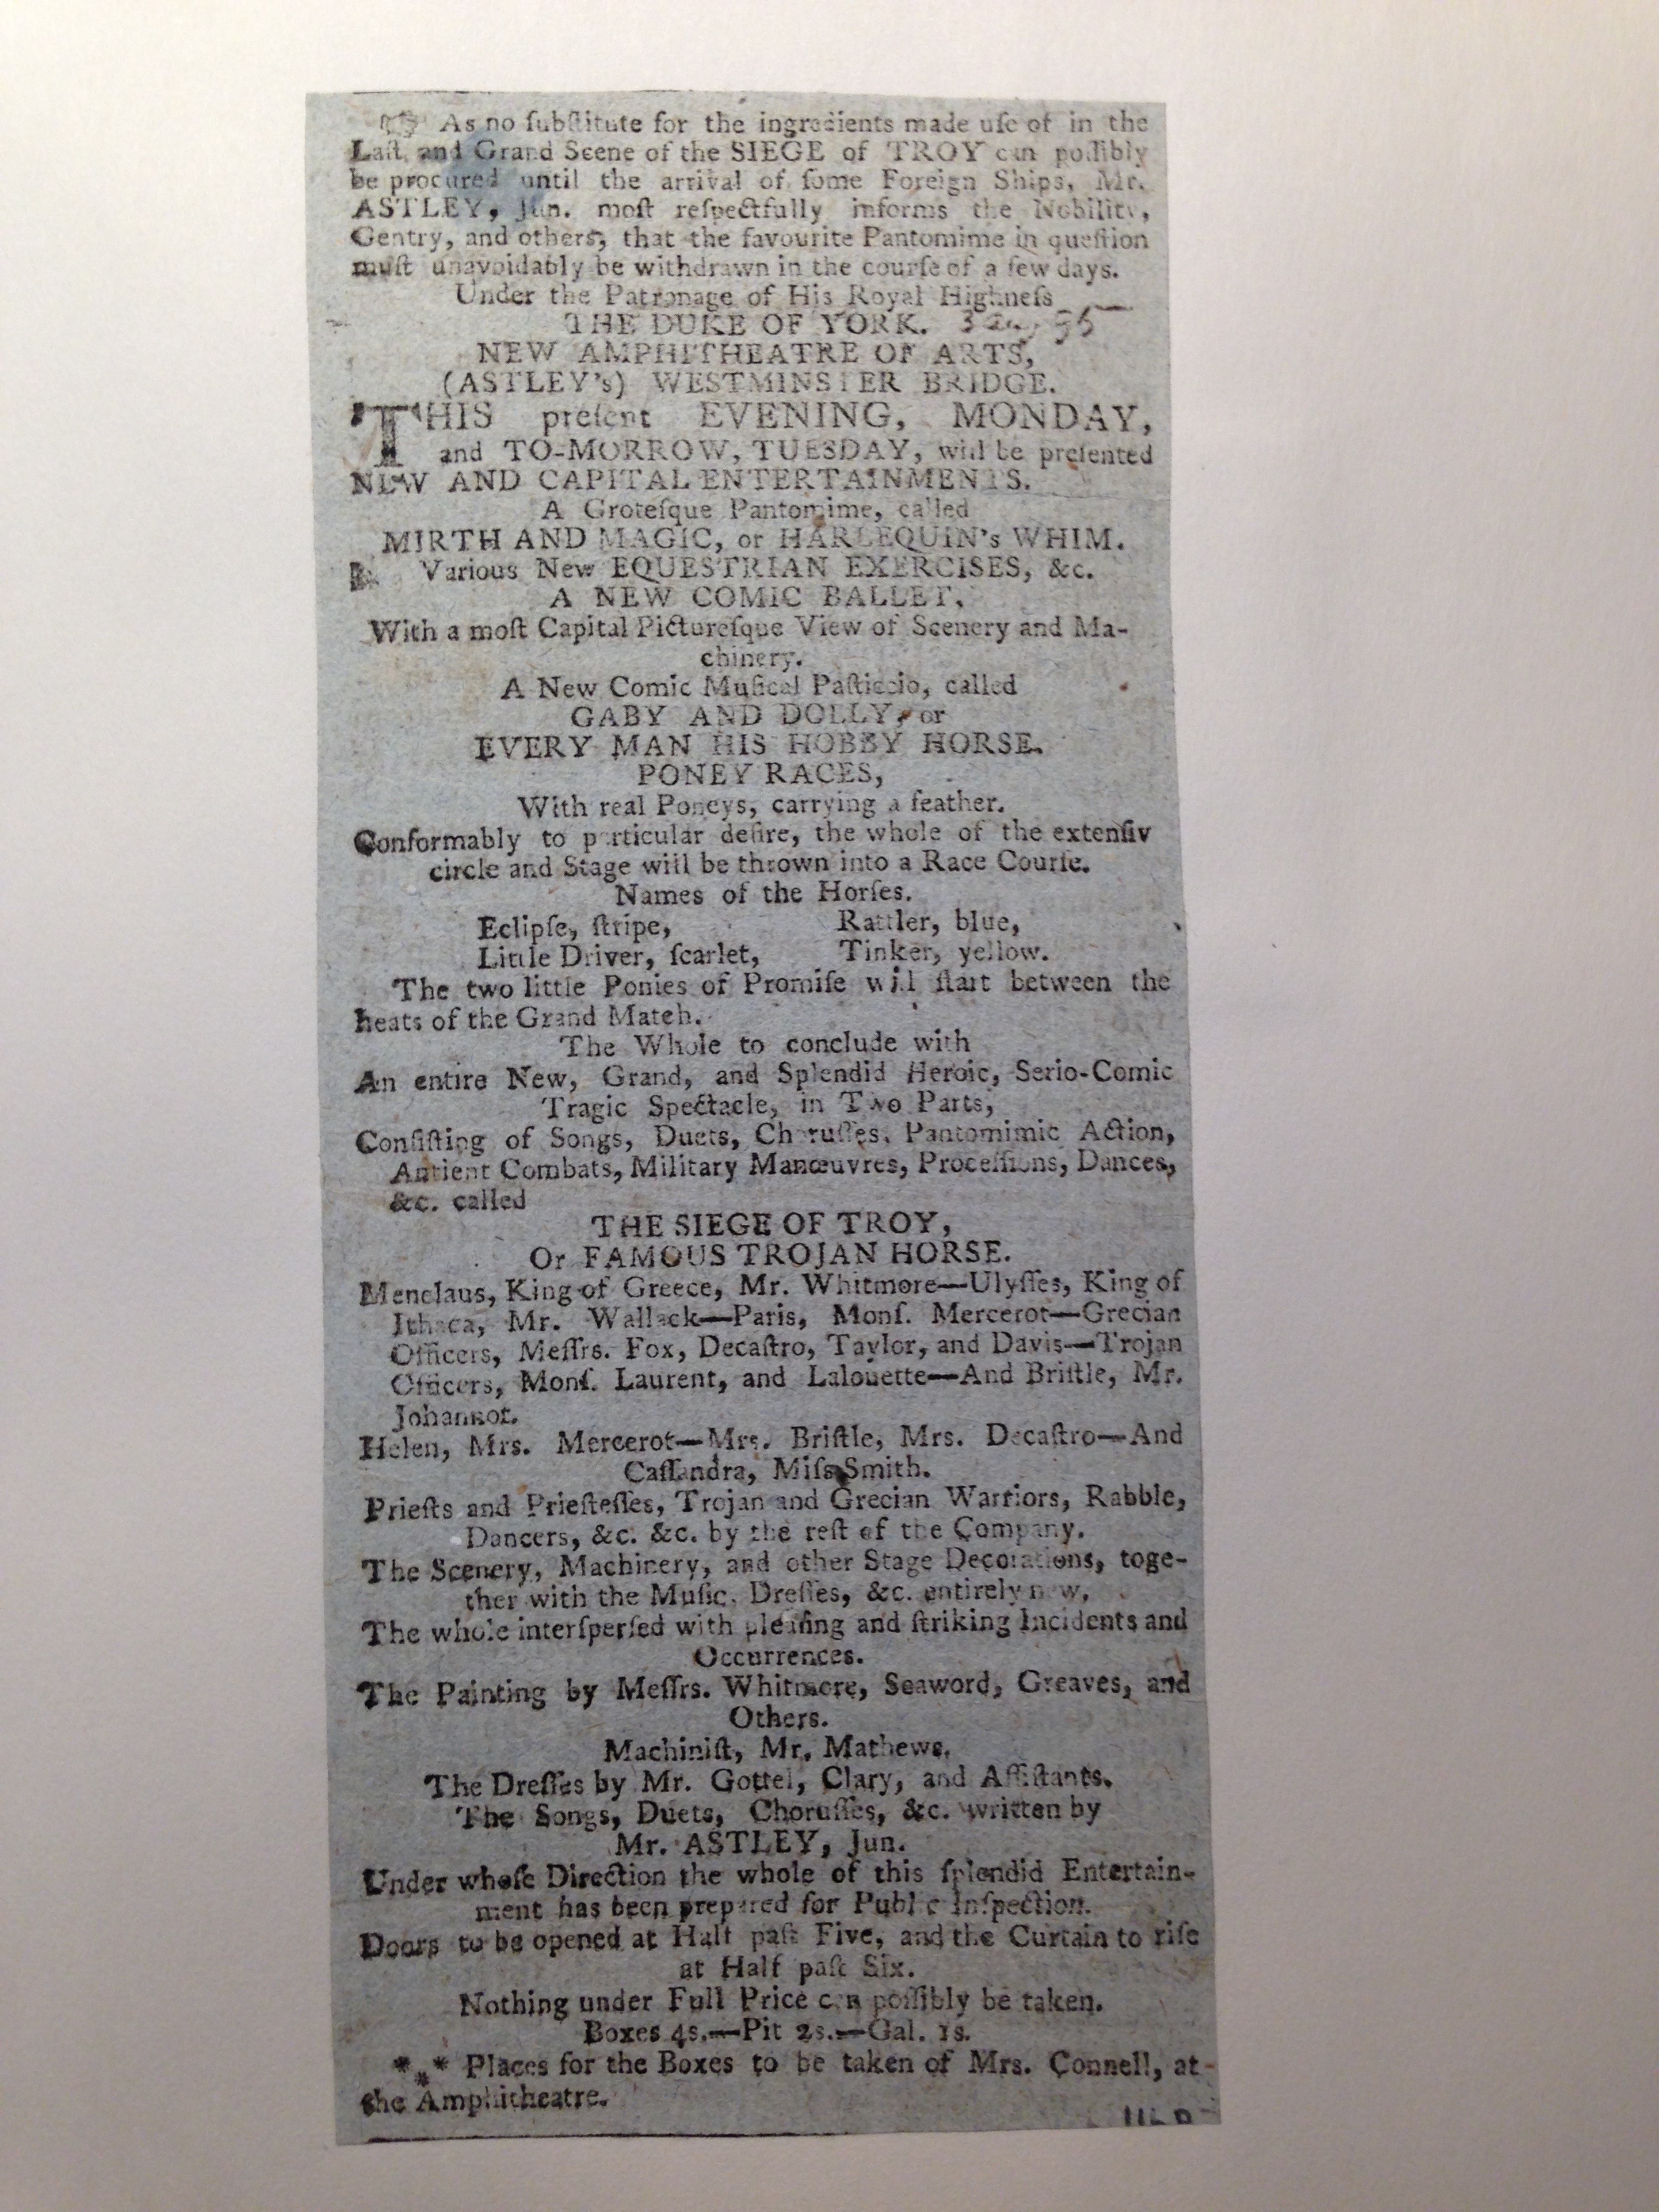 As no ſubſtitute for the ingredients made uſe of in the
Laſt and Grand Scene of the SIEGE of TROY can poſſibly
be procured until the arrival of ſome Foreign Ships, Mr.
ASTLEY, Jun. moſt reſpectfully informs the Nobility,
Gentry, and others, that the favourite Pantomime in queſtion
muſt unavoidably be withdrawn in the courſe of a few days.
Under the Patronage of His Royal Highneſs
THE DUKE OF YORK. 95
NEW AMPHITHEATRE OF ARTS,
(ASTLEY's) WESTMINSTER BRIDGE.
THIS preſent EVENING, MONDAY,
and TO-MORROW, TUESDAY, will be preſented
NEW AND CAPITAL ENTERTAINMENTS.
A Groteſque Pantomime, called
MIRTH AND MAGIC, or HARLEQUIN's WHIM.
Various New EQUESTRIAN EXERCISES, &c.
A NEW COMIC BALLET,
With a moſt Capital Pictureſque View of Scenery and Ma-
chinery.
A New Comic Muſical Paſticcio, called
GABY AND DOLLY, or
EVERY MAN HIS HOBBY HORSE.
PONEY RACES,
With real Poneys, carrying a feather.
Conformably to particular deſire, the whole of the extenſiv
circle and Stage will be thrown into a Race Courſe.
Names of the Horſes.
Eclipſe, ſtripe, Rattler, blue,
Little Driver, ſcarlet, Tinker, yellow.
The two little Ponies of Promiſe will ſtart between the
heats of the Grand Match.
The Whole to conclude with
An entire New, Grand, and Splendid Heroic, Serio-Comic
Tragic Spectacle, in Two Parts,
Conſiſting of Songs, Duets, Choruſſes, Pantomimic Action,
Antient Combats, Military Manœuvres, Proceſſions, Dances,
&c. called
THE SIEGE OF TROY,
Or FAMOUS TROJAN HORSE.
Menelaus, King of Greece, Mr. Whitmore—Ulyſſes, King of
Ithaca, Mr. Wallack—Paris, Monſ. Mercerot—Grecian
Officers, Meſſrs. Fox, Decaſtro, Taylor, and Davis—Trojan
Officers, Monſ. Laurent, and Lalouette—And Briſtle, Mr.
Johannot.
Helen, Mrs. Mercerot—Mrs. Briſtle, Mrs. Decaſtro—And
Caſſandra, Miſs Smith.
Prieſts and Prieſteſſes, Trojan and Grecian Warriors, Rabble,
Dancers, &c. &c. by the reſt of the Company.
The Scenery, Machinery, and other Stage Decorations, toge-
ther with the Muſic, Dreſſes, &c. entirely new,
The whole interſperſed with pleaſing and ſtriking Incidents and
Occurrences.
The Painting by Meſſrs. Whitmore, Seaword, Greaves, and
Others.
Machiniſt, Mr. Mathews.
The Dreſſes by Mr. Gottel, Clary, and Aſſiſtants.
The Songs, Duets, Choruſſes, &c. written by
Mr. ASTLEY, Jun.
Under whoſe Direction the whole of this ſplendid Entertain-
ment has been prepared for Public Inſpection.
Doors to be opened at Half paſt Five, and the Curtain to riſe
at Half paſt Six.
Nothing under Full Price can poſſibly be taken.
Boxes 4s.—Pit 2s.—Gal. 1s.
*** Places for the Boxes to be taken of Mrs. Connell, at
the Amphitheatre.